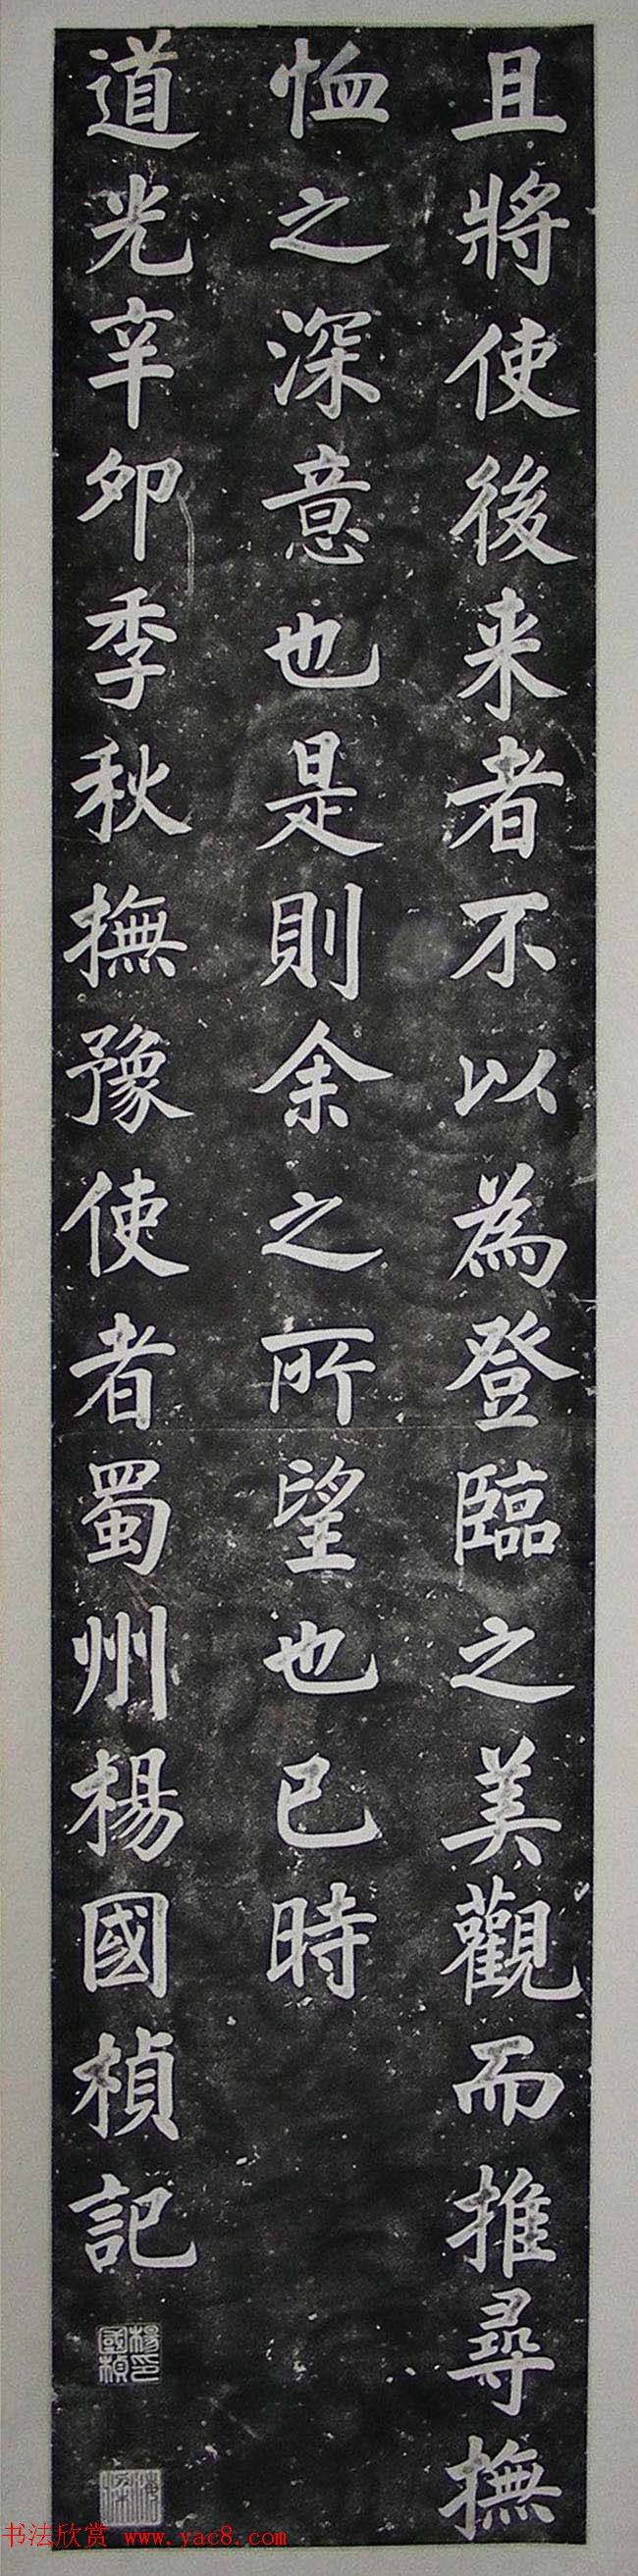 且將使後来者不以為登臨之美觀而推尋撫
恤之深意也是則余之所望也已時
道光辛卯季秋撫豫使者蜀州楊國楨記
楊國楨印
书法欣赏 www.yac8.com